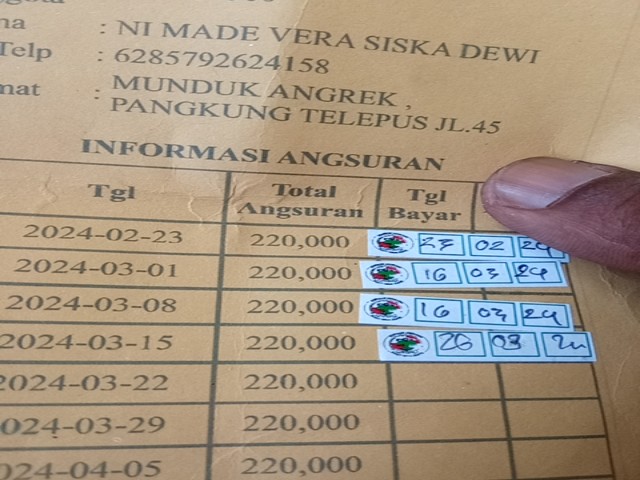 na : NI MADE VERA SISKA DEWI
Telp : 6285792624158
mat : MUNDUK ANGREK,
PANGKUNG TELEPUS JL.45
INFORMASI ANGSURAN
Tgl Total Angsuran Tgl Bayar
2024-02-23 220,000 23 02 24
2024-03-01 220,000 16 03 24
2024-03-08 220,000 16 03 24
2024-03-15 220,000 26 03 24
2024-03-22 220,000
2024-03-29 220,000
2024-04-05 220,000